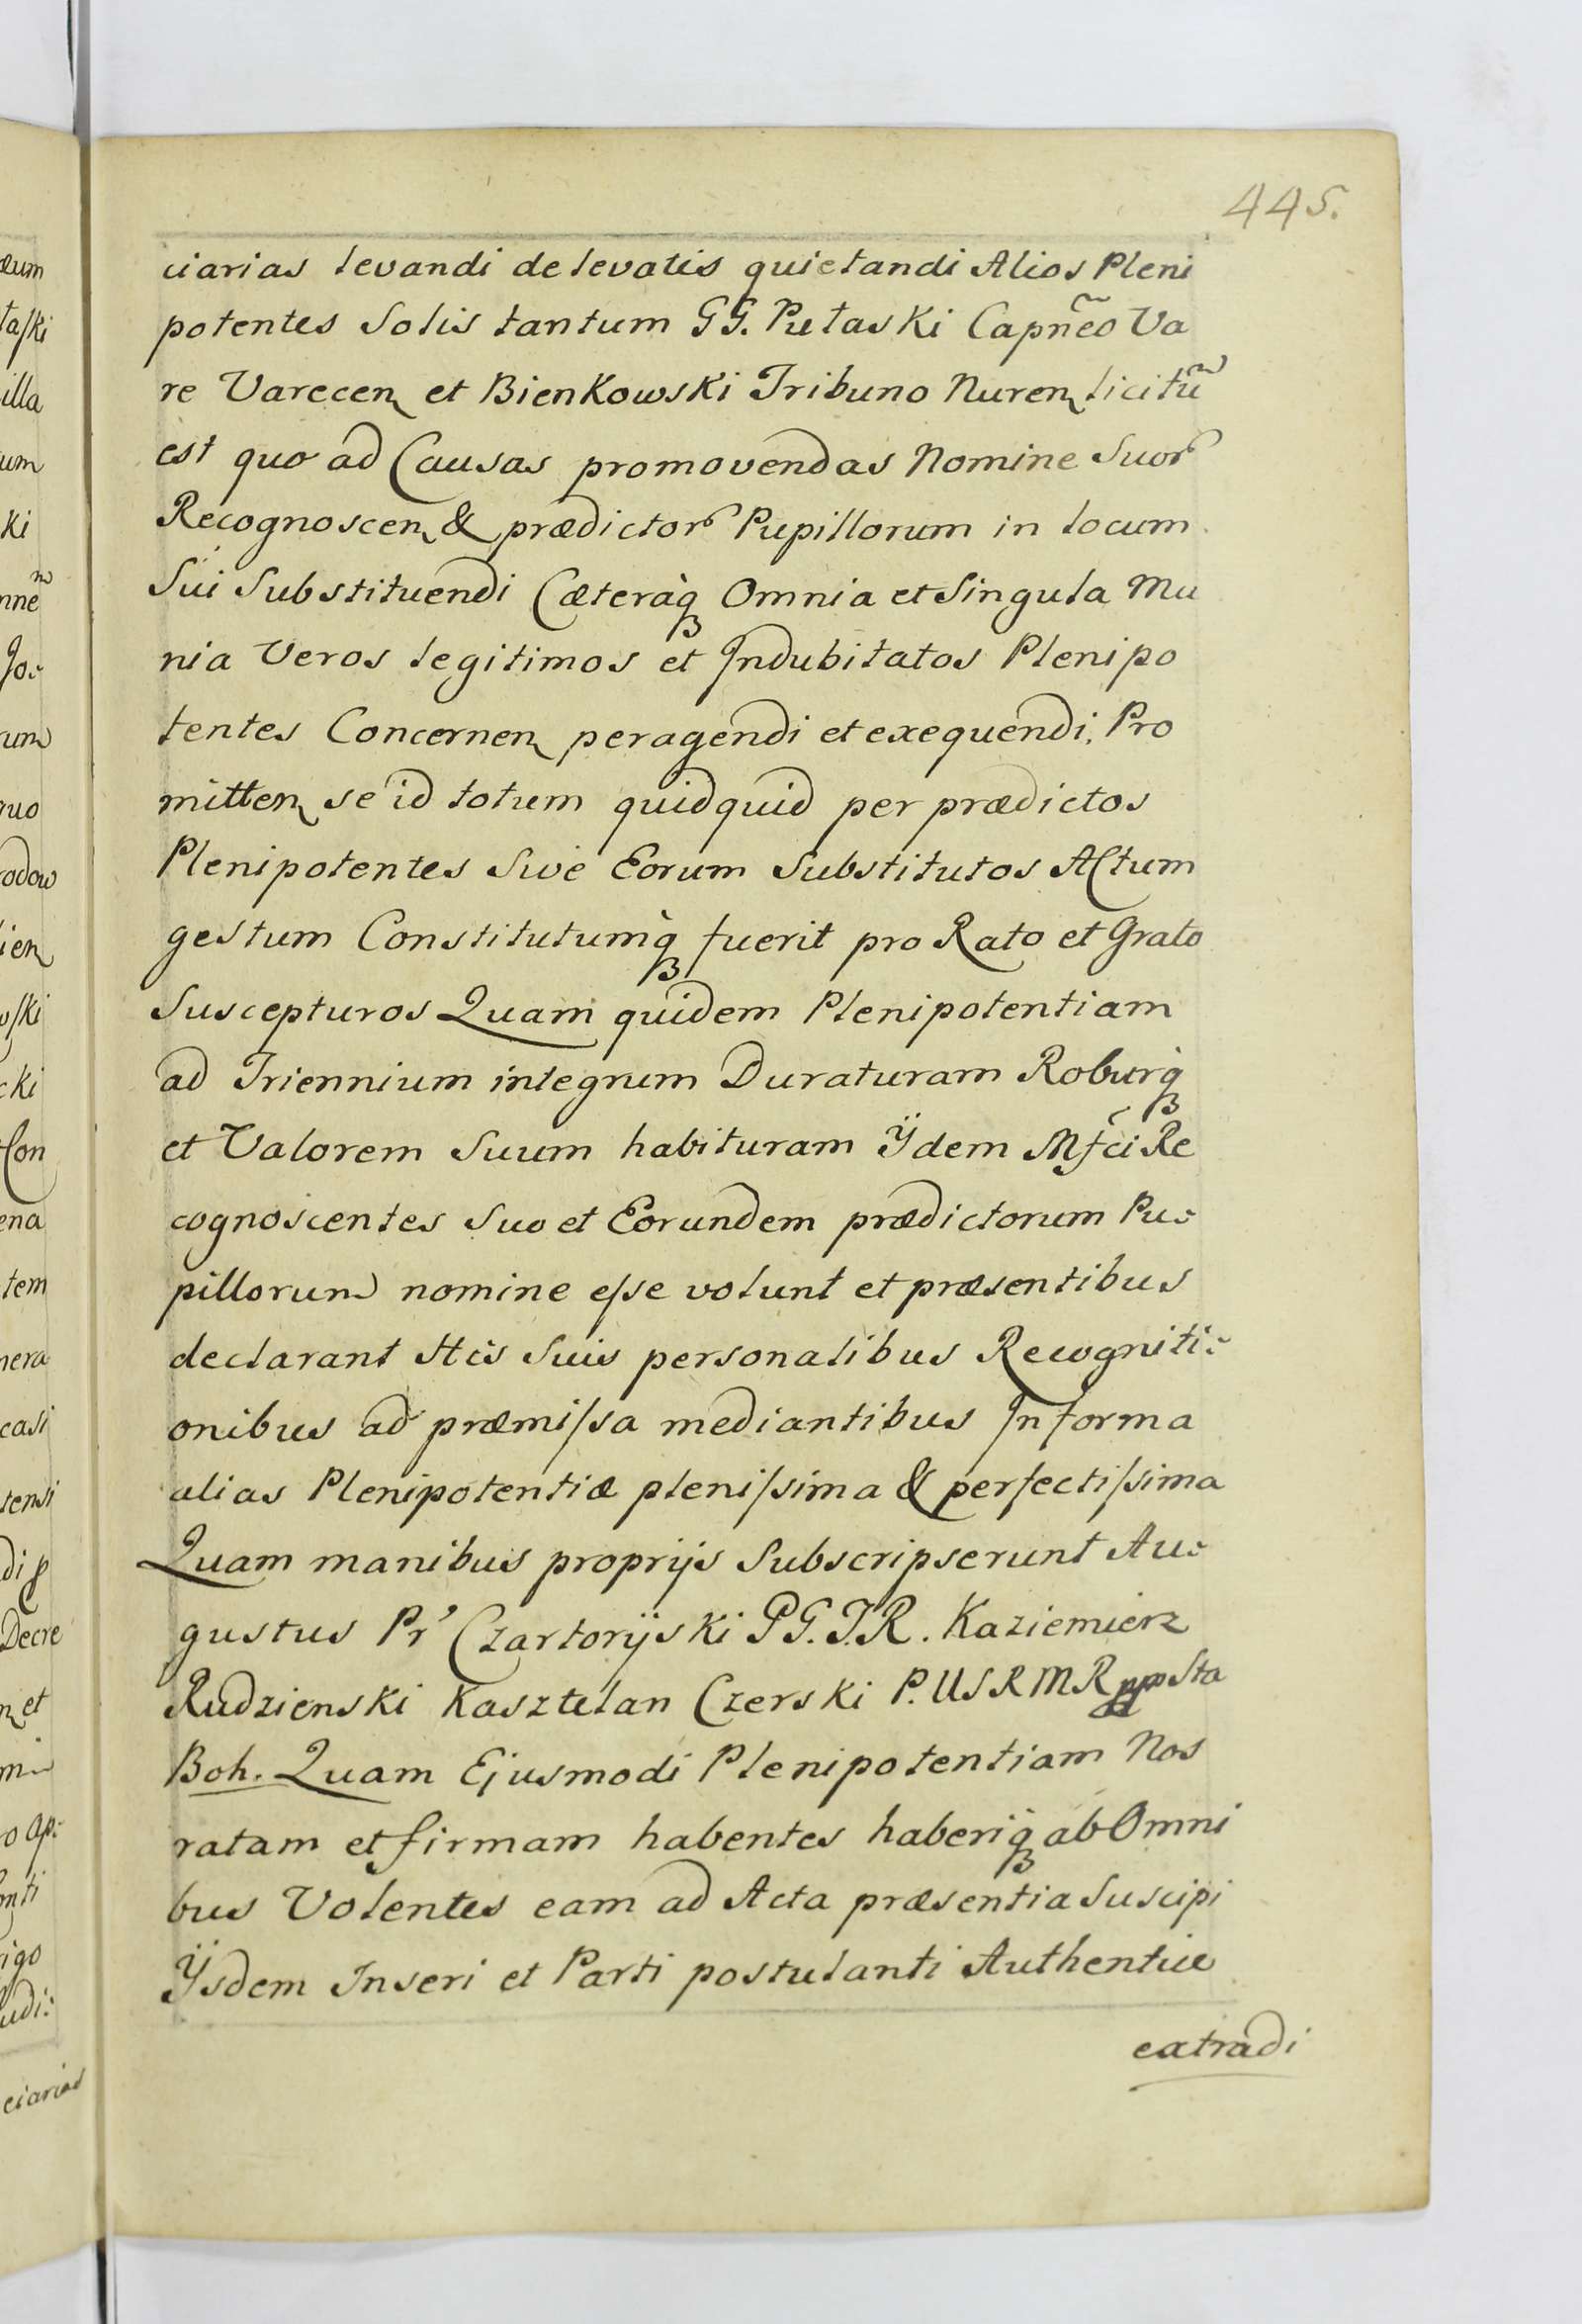 445.
ciarias levandi de levatis quietandi Alios Pleni
potentes Solis tantum GG. Pułaski Capñeo Va
re Varecen et Bienkowski Tribuno Nuren licitũ
est quo ad Causas promovendas Nomine Suor
Recognoscen & prædictor Pupillorum in locum
Sui Substituendi Cæteràq Omnia et Singula Mu
nia Veros legitimos et Indubitatos Plenipo
tentes Concernen peragendi et exequendi. Pro
mitten se id totum quidquid per prædictos
Plenipotentes Sive Eorum Substitutos Actum
gestum Constitutumq̀ fuerit pro Rato et Grato
Suscepturos Quam quidem Plenipotentiam
ad Triennium integrum Duraturam Roburq̀
et Valorem Suum habituram Ÿdem Mfci Re
cognoscentes Suo et Eorundem prædictorum Pu-
pillorum nomine eſse volunt et præsentibus
declarant Hcis Suis personalibus Recogniti-
onibus ad præmiſsa mediantibus In forma
alias Plenipotentiæ pleniſsima & perfectiſsima
Quam manibus proprijs Subscripserunt Au-
gustus Pr Czartoryski P G. T. R. Kaziemierz
Rudzienski Kasztelan Czerski P. U S R M R Sta
Boh. Quam Ejusmodi Plenipotentiam Nos
ratam et firmam habentes haberiq̀ ab Omni
bus Volentes eam ad Acta præsentia Suscipi
Ÿsdem Inseri et Parti postulanti Authentice
extradi
æum
taſki
illa
um
ki
Jo-
rum
quo
ien
cki
ena
tem
nera
casi
tensi
Decre
et
rigo
udi-
ciarias